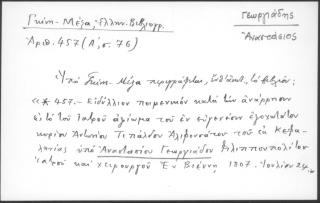 Γκίνη - Μέξα, Ελλην. Βιβλιογρ.
Αριθ. 457 (Α', σ. 76)
Γεωργιάδης
Αναστάσιος
Υπό Γκίνη - Μέξα περιγράφεται, το βιβλίον:
«* 457. - Ειδύλλιον ποιμενικόν κατά την ανάρρησιν
εις το του Ιατρού αξίωμα του εν ευγενέσιν εξοχωτάτου
κυρίου Αντωνίου Τυπάλδου του εκ Κεφα-
ληνίας υπό Αναστασίου Γεωργιάδου Φιλιππουπολίτου
ιατρού και χειρουργού Εν Βιέννη, 1807. Ιουλίου 24.